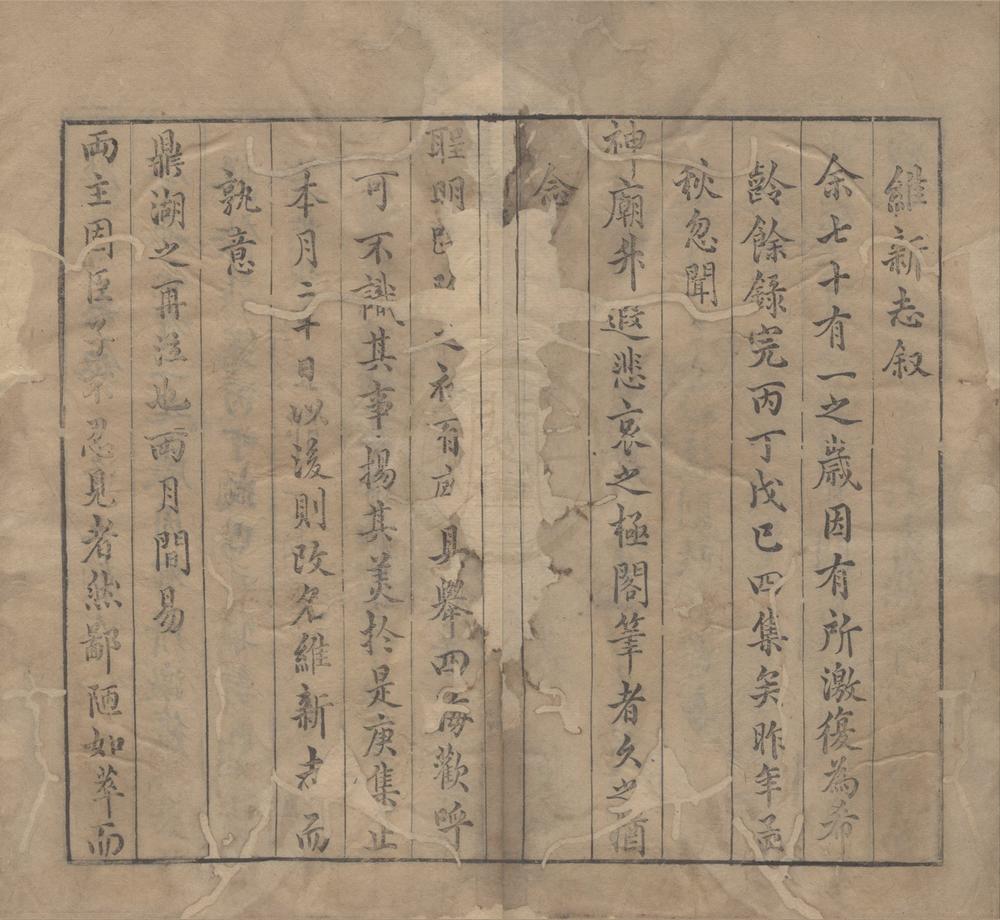 維新志叙
余七十有一之歲因有所激復為希
齡餘錄完丙丁戊已四集矣昨年孟
秋忽聞
神廟升遐悲哀之極閣筆者久之猶
念
聖明 之 有 具舉四海歡呼
可不識其事揚其美於是庚集止
本月二十日以後則改名維新志而
孰意
鼎湖之再泣也兩月間易
兩主因臣子不忍見者然鄙陋如萃而